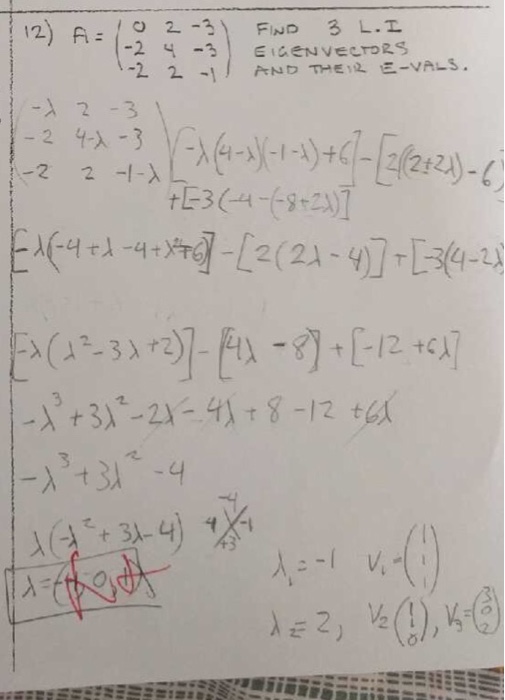 12) A = ( 0 2 -3 FIND 3 L.I
-2 4 -3 EIGENVECTORS
-2 2 -1 ) AND THEIR E-VALS.
-λ 2 -3
-2 4-λ -3
-2 2 -1-λ
[-λ(4-λ)(-1-λ)+6] - [2((2+2λ)-6)
+[-3(-4-(-8+2λ)]
[-λ(-4+λ-4+λ²+6)] - [2(2λ-4)] + [-3(4-2λ)
[-λ(λ²-3λ+2)] - [4λ-8] + [-12+6λ]
-λ³+3λ²-2λ-4λ+8-12+6λ
-λ³+3λ²-4
λ(-λ²+3λ-4) -4 4 -1 +3
λ=
λ₁=-1 V₁=(1 1 1)
λ=2, V₂(1 1 0), V₃=(3 0 2)